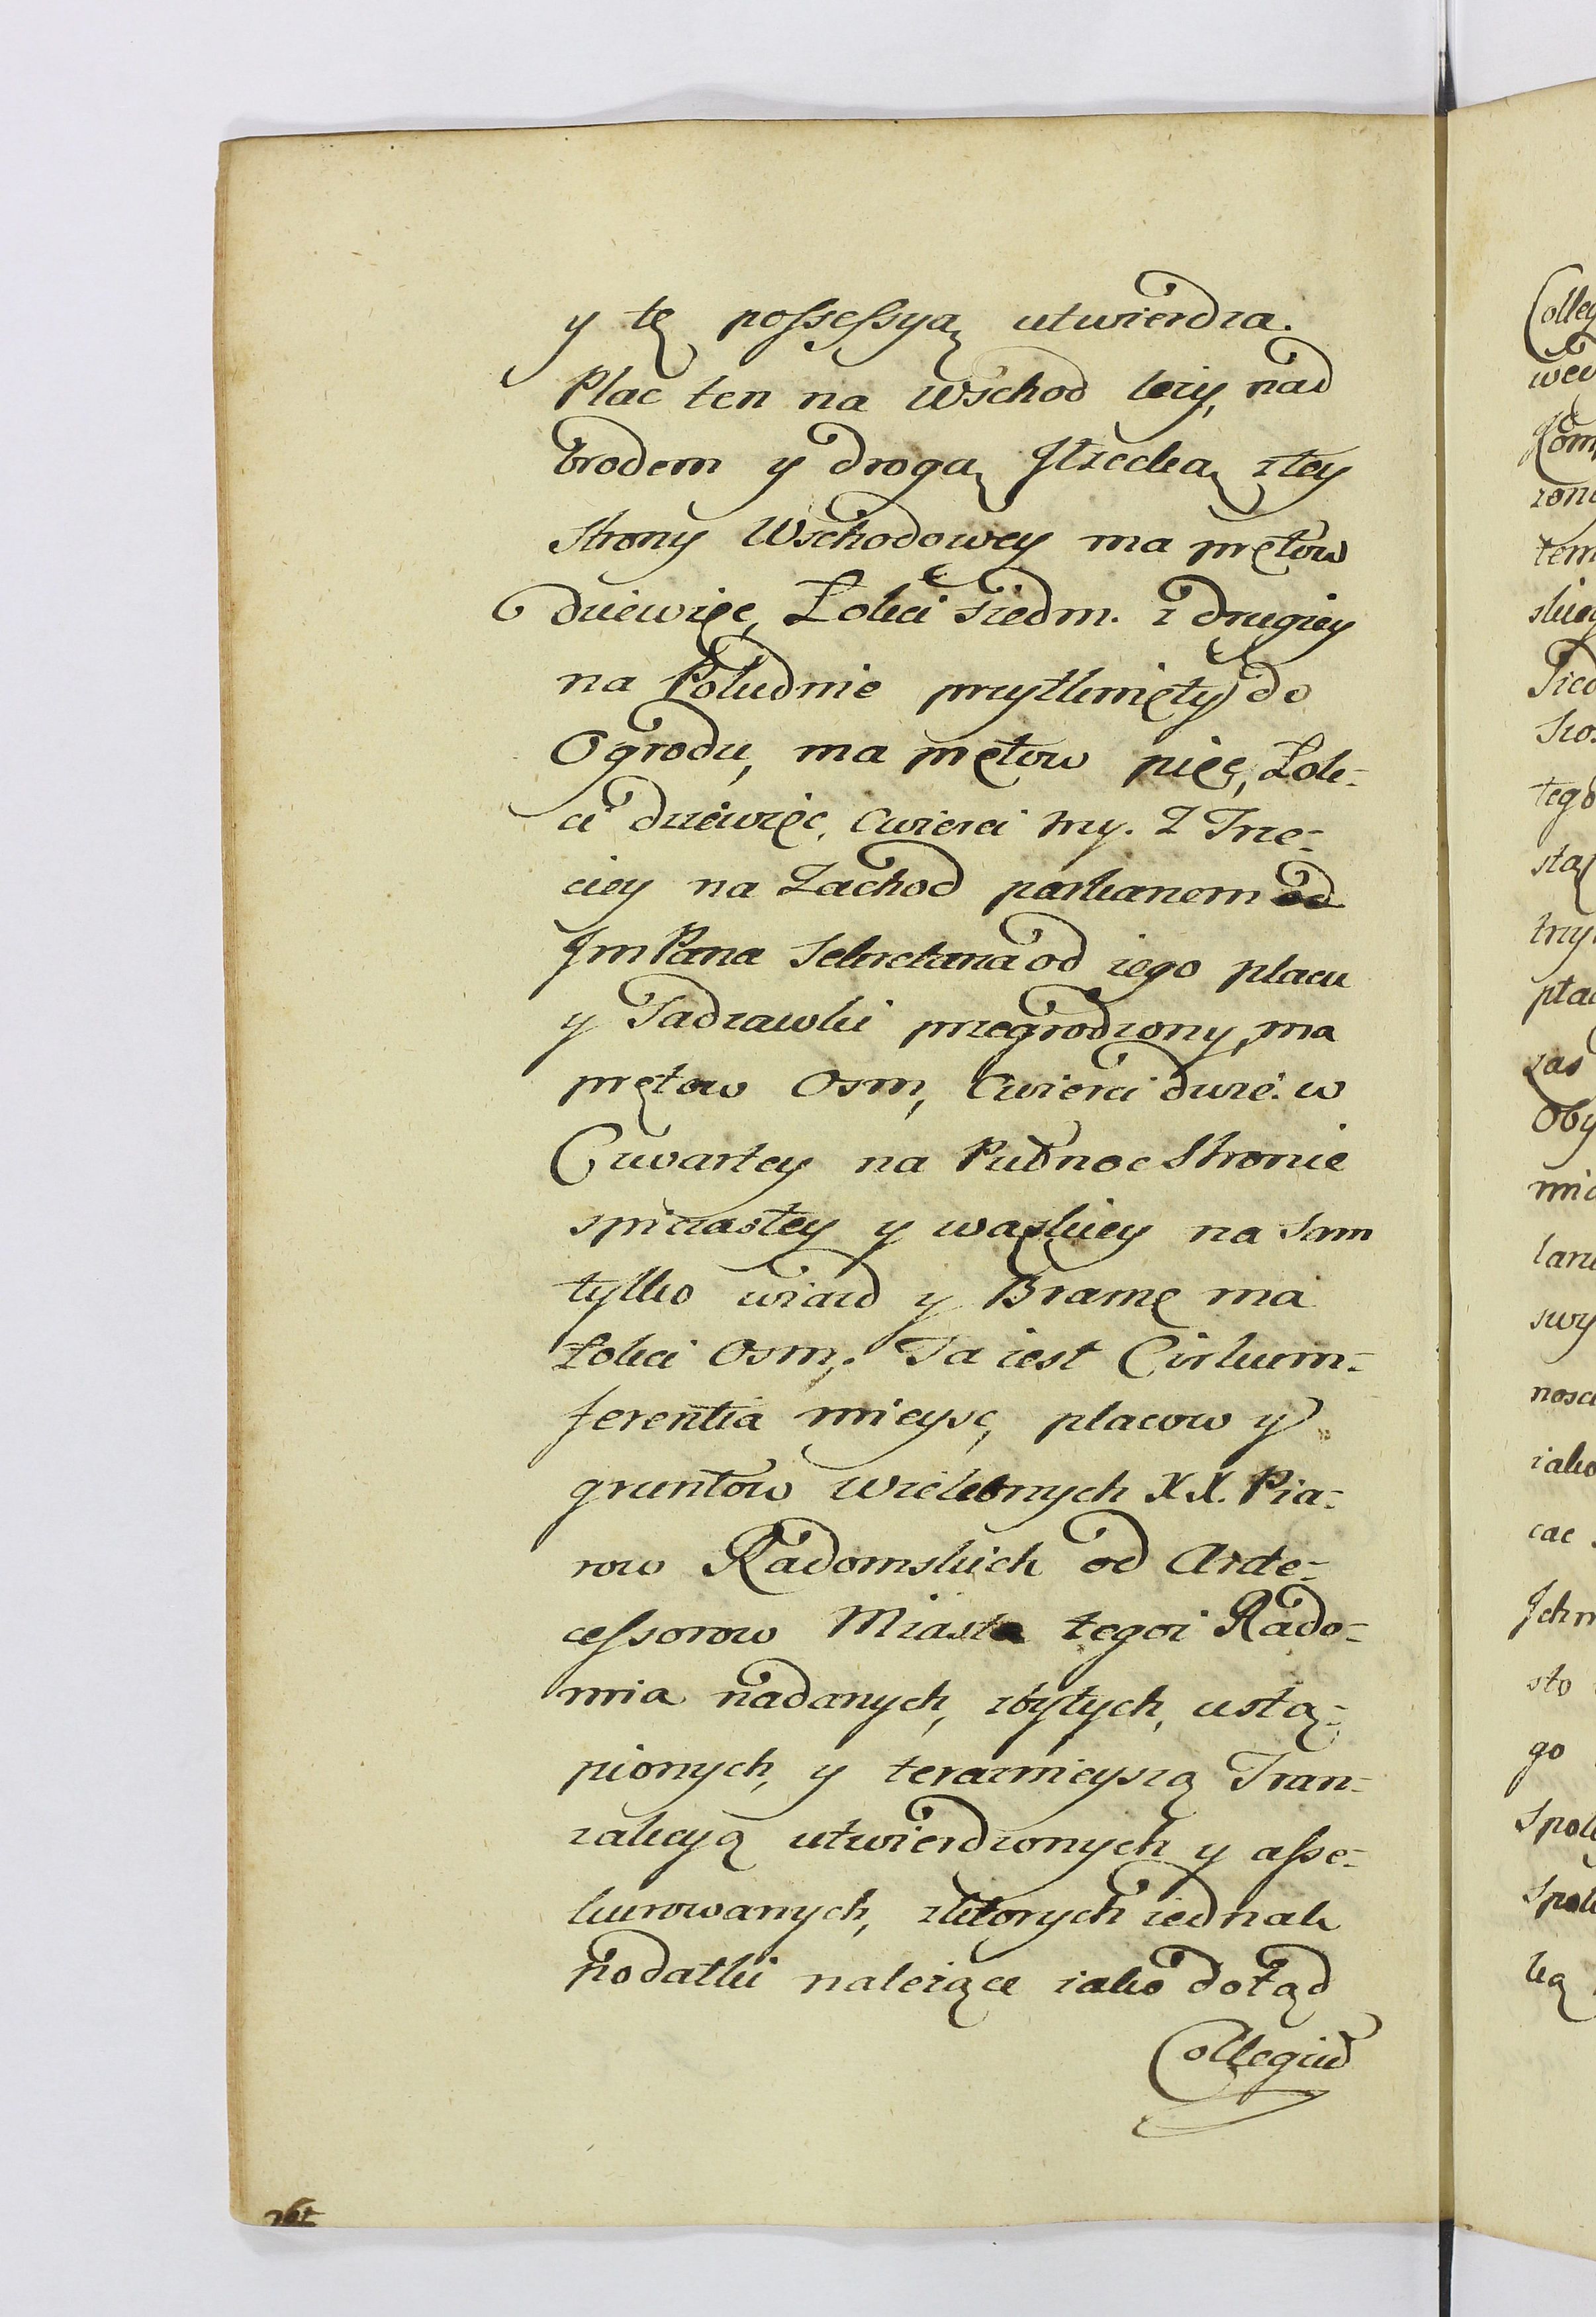 y tę possessyą utwierdza.
Plac ten na Wschod leży, nad
brodem y drogą Jłzecką z tey
strony Wschodowey ma prętow
dziewięc, Łokci siedm. z drugiey
na Południe przytknięty do
Ogrodu, ma prętow pięc, Łok-
ci dziewięc, cwierci trzy. Z Trze-
ciey na Zachod parkanem od
Jm Pana Sekretarza od iego placu
y Sadzawki przegrodzony, ma
prętow Osm, Cwierci dwie. w
Czwartey na Pułnoc Stronie
spiczastey y wązkiey na sam
tylko wiazd y Bramę ma
Łokci Osm. Ta iest Cirkum-
ferentia mieysc, placow y
gruntow Wielebnych XX. Pia-
row Radomskich od Arte-
cessorow Miasta tegoż Rado-
mia nadanych, zbytych, ustą-
pionych, y teraznieyszą Tran-
zakcyą utwierdzonych y asse-
kurowanych, z ktorych iednak
podatki należące iako dotąd
Collegiū